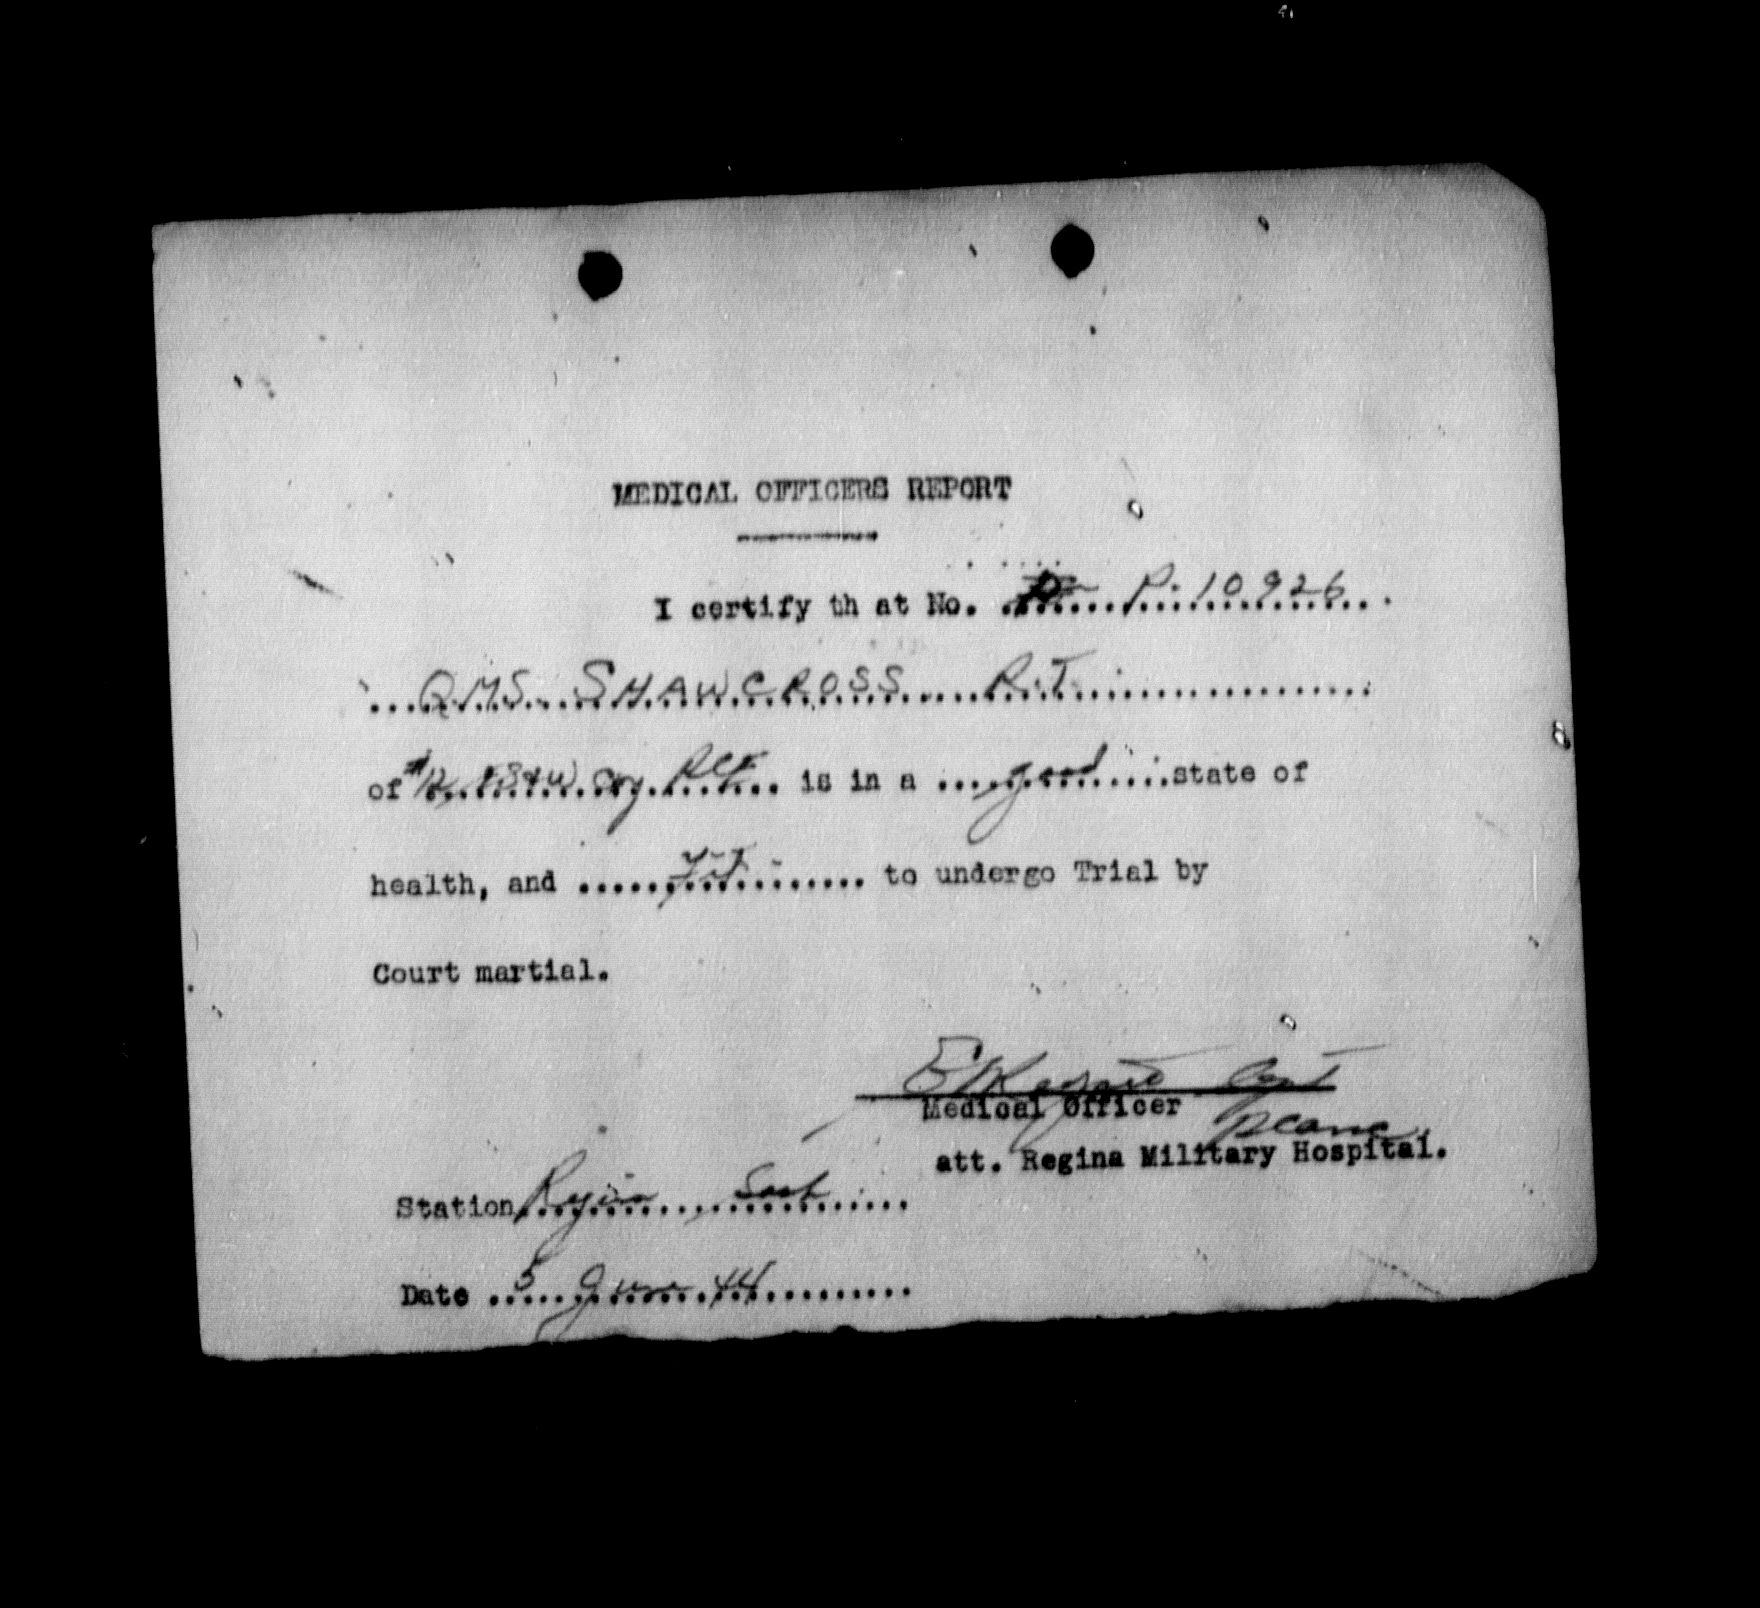 MEDICAL OFFICERS REPORT
I certify th at No. P. 10926
Q.M.S. SHAWCROSS R.T.
of #12 F.S.&W Coy RCE is in a good state of
health, and Fit to undergo Trial by
Court martial.
Capt
Medical Officer RCAMC
att. Regina Military Hospital.
Station Regina Sask
Date 5 June 44